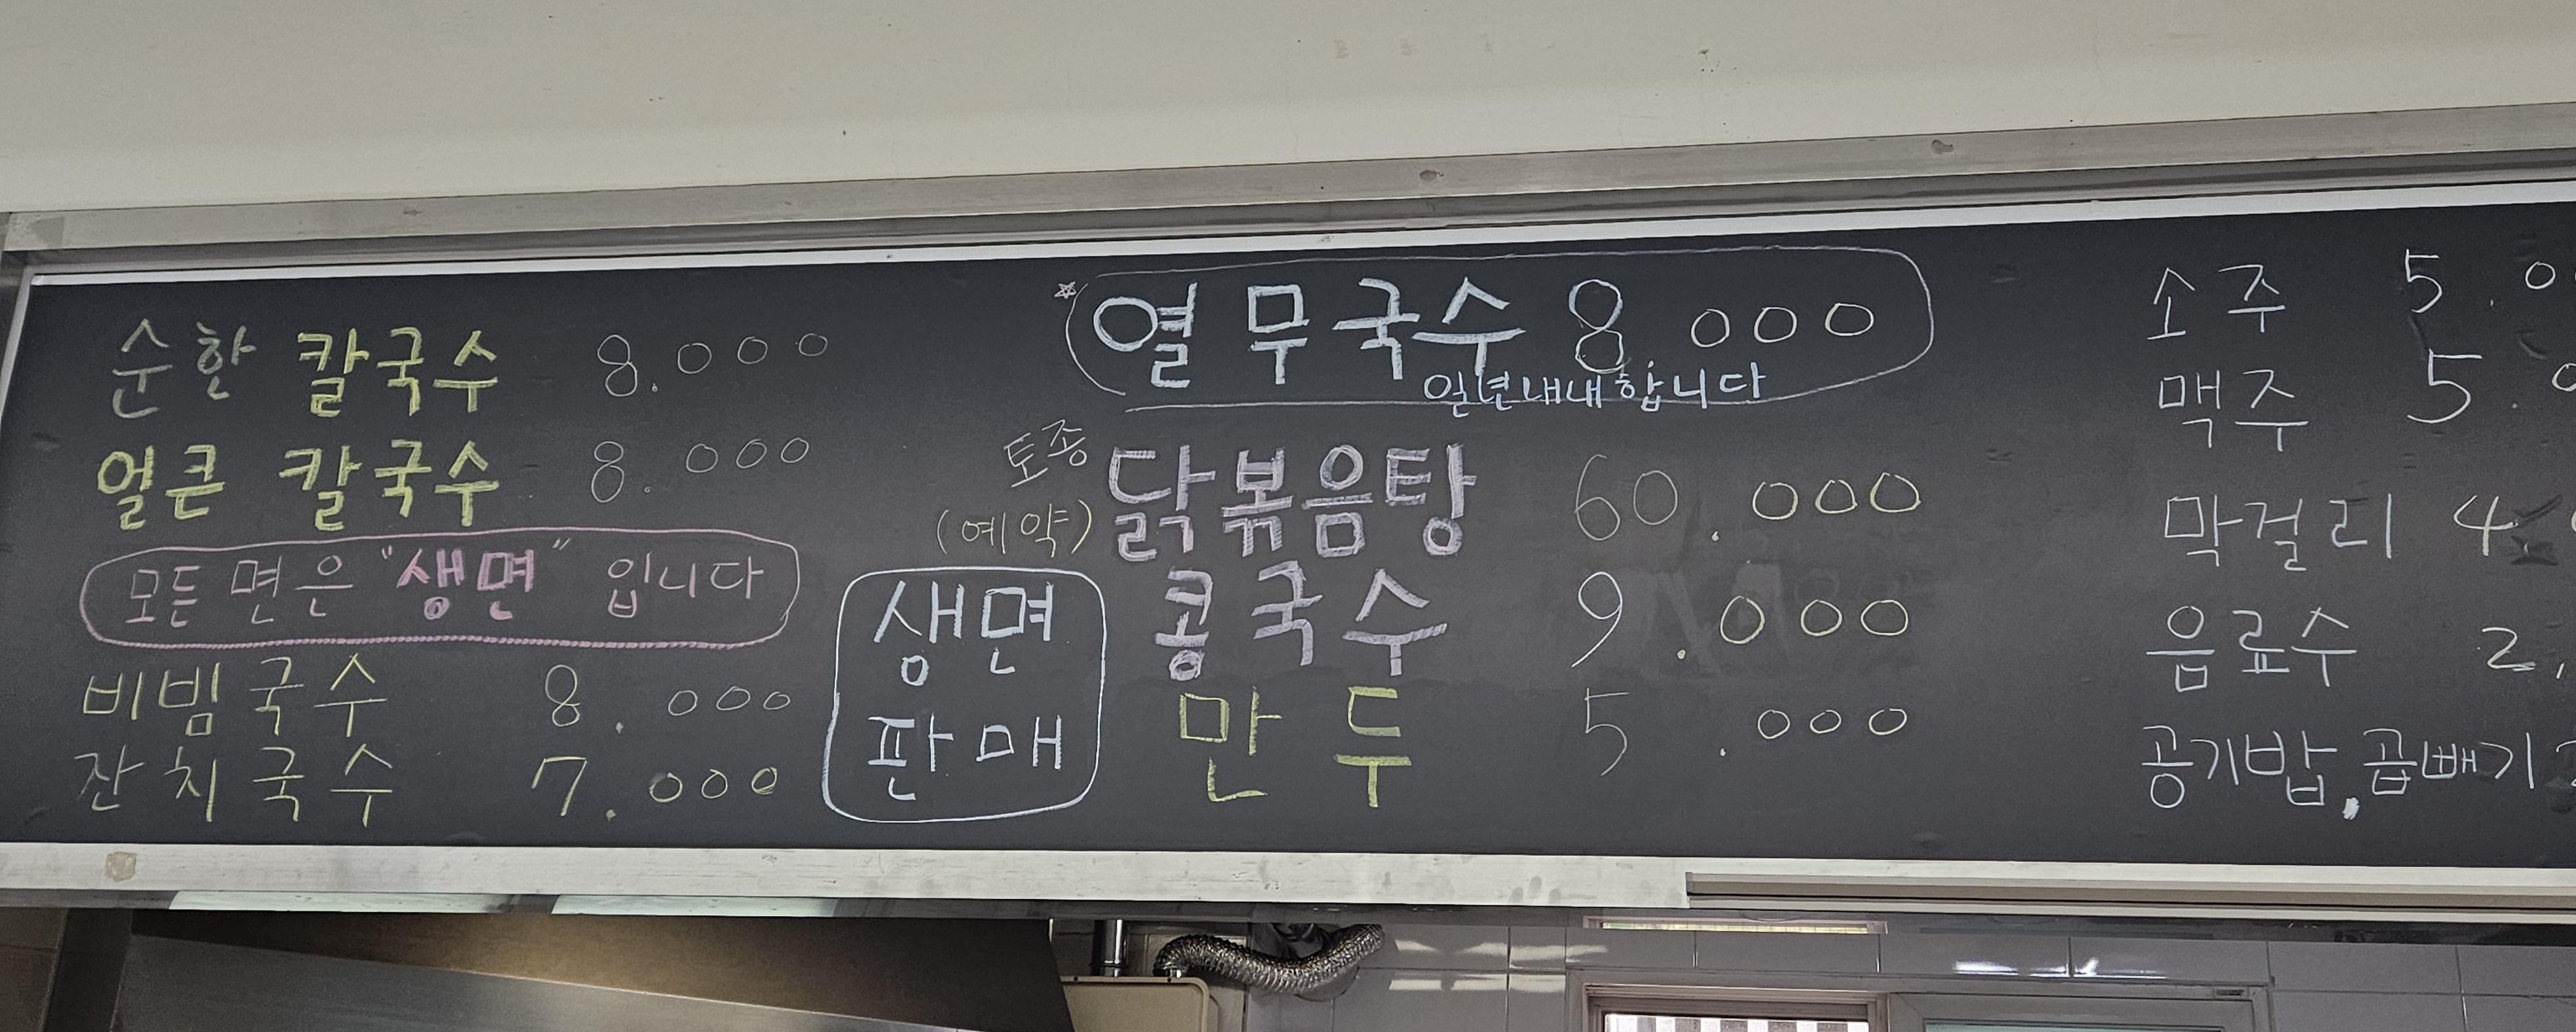 순한 칼국수 8.000
얼큰 칼국수 8.000
모든 면은 "생면" 입니다
비빔국수 8.000
잔치국수 7.000
생면
판매
열무국수 8.000
일년내내합니다
토종
(예약)
닭볶음탕 60.000
콩국수 9.000
만두 5.000
소주 5.0
맥주 5.0
막걸리 4
음료수 2,
공기밥, 곱빼기